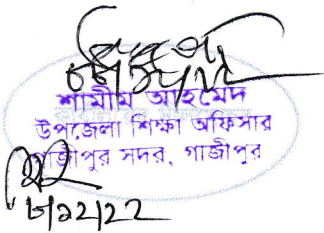 শামীম আহমেদ
উপজেলা শিক্ষা অফিসার
গাজীপুর সদর, গাজীপুর
৮/১২/২২